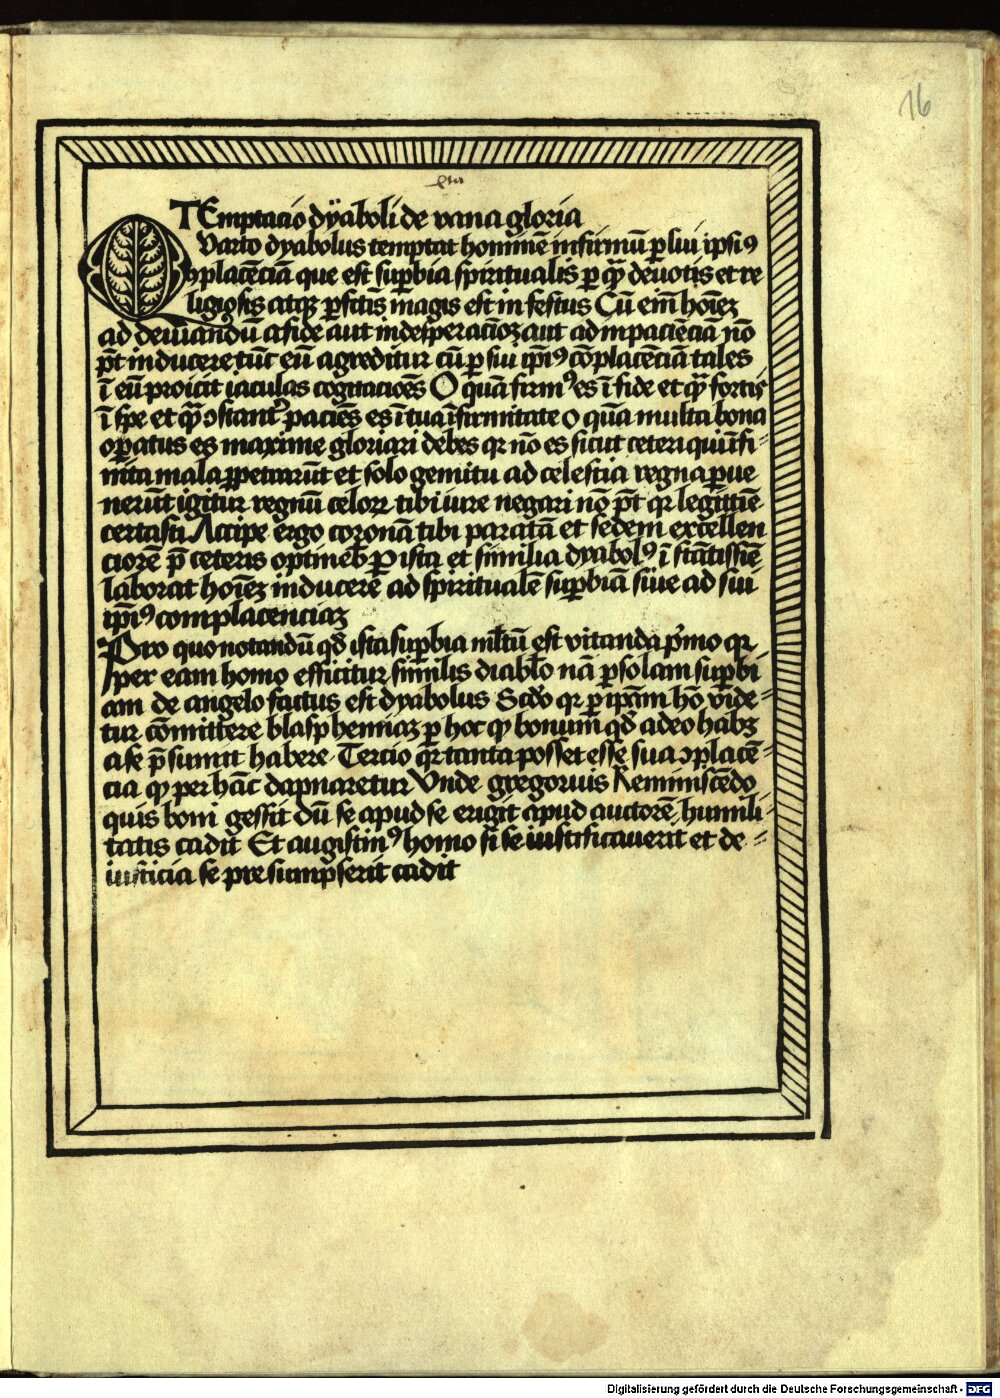 16
TEmptacio dyaboli de vana gloria
Quarto dyabolus temptat hominē infirmū ꝑ sui ipsiꝰ
ꝯplacēciā que est suꝑbia spiritualis ꝑ qm̄ deuotis et re
ligiosis atqꝫ ꝑfectis magis est infestus Cū em̄ hoīeꝫ
ad deuiandū a fide aut in desperacioeꝫ aut ad inpaciēciā nō
pōt inducere tūc eū agreditur cū ꝑ sui ipīꝰ cōplacēciā tales
ī eū proicit iaculas cogitacioēs O quā firmꝰ es ī fide et qm̄ fortis
ī spe et qm̄ ꝯstantꝰ paciēs es ī tua īfirmitate o quā multa bona
oꝑatus es maxime gloriari debes qꝛ nō es sicut ceteri qui īfi⸗
nita mala ꝑpetrarūt et solo gemitu ad celestia regna ꝑue
nerūt igitur regnū celoꝝ tibi iure negari nō pōt qꝛ legittīe
certasti Accipe ergo coronā tibi paratā et sedem excellen
ciorē p̄ ceteris optinebꝭ Ꝑ ista et similia dyabolꝰ īstātissīe
laborat hoīeꝫ inducere ad spiritualē suꝑbiā siue ad sui
ipīꝰ complacenciaꝫ
Pro quo notandū qd̄ ista suꝑbia mltū est vitanda pͥmo qꝛ
per eam homo efficitur similis diabolo nā ꝑ solam suꝑbi
am de angelo factus est dyabolus Scd̄o qꝛ ꝑ ipām hō vide⸗
tur cōmittere blasphemiaꝫ ꝑ hoc qꝙ bonum qd̄ a deo habꝫ
a se p̄sumit habere Tercio qꝛ tanta posset esse sua ꝯplacē⸗
cia qꝙ per hāc dapnaretur Vnde gregorius Reminiscēdo
quis boni gessit dū se apud se erigit apud auctorē humili⸗
tatis cadit Et augustinꝰ homo si se iustificauerit et de⸗
iusticia se presumpserit cadit
Digitalisierung gefördert durch die Deutsche Forschungsgemeinschaft - DFG